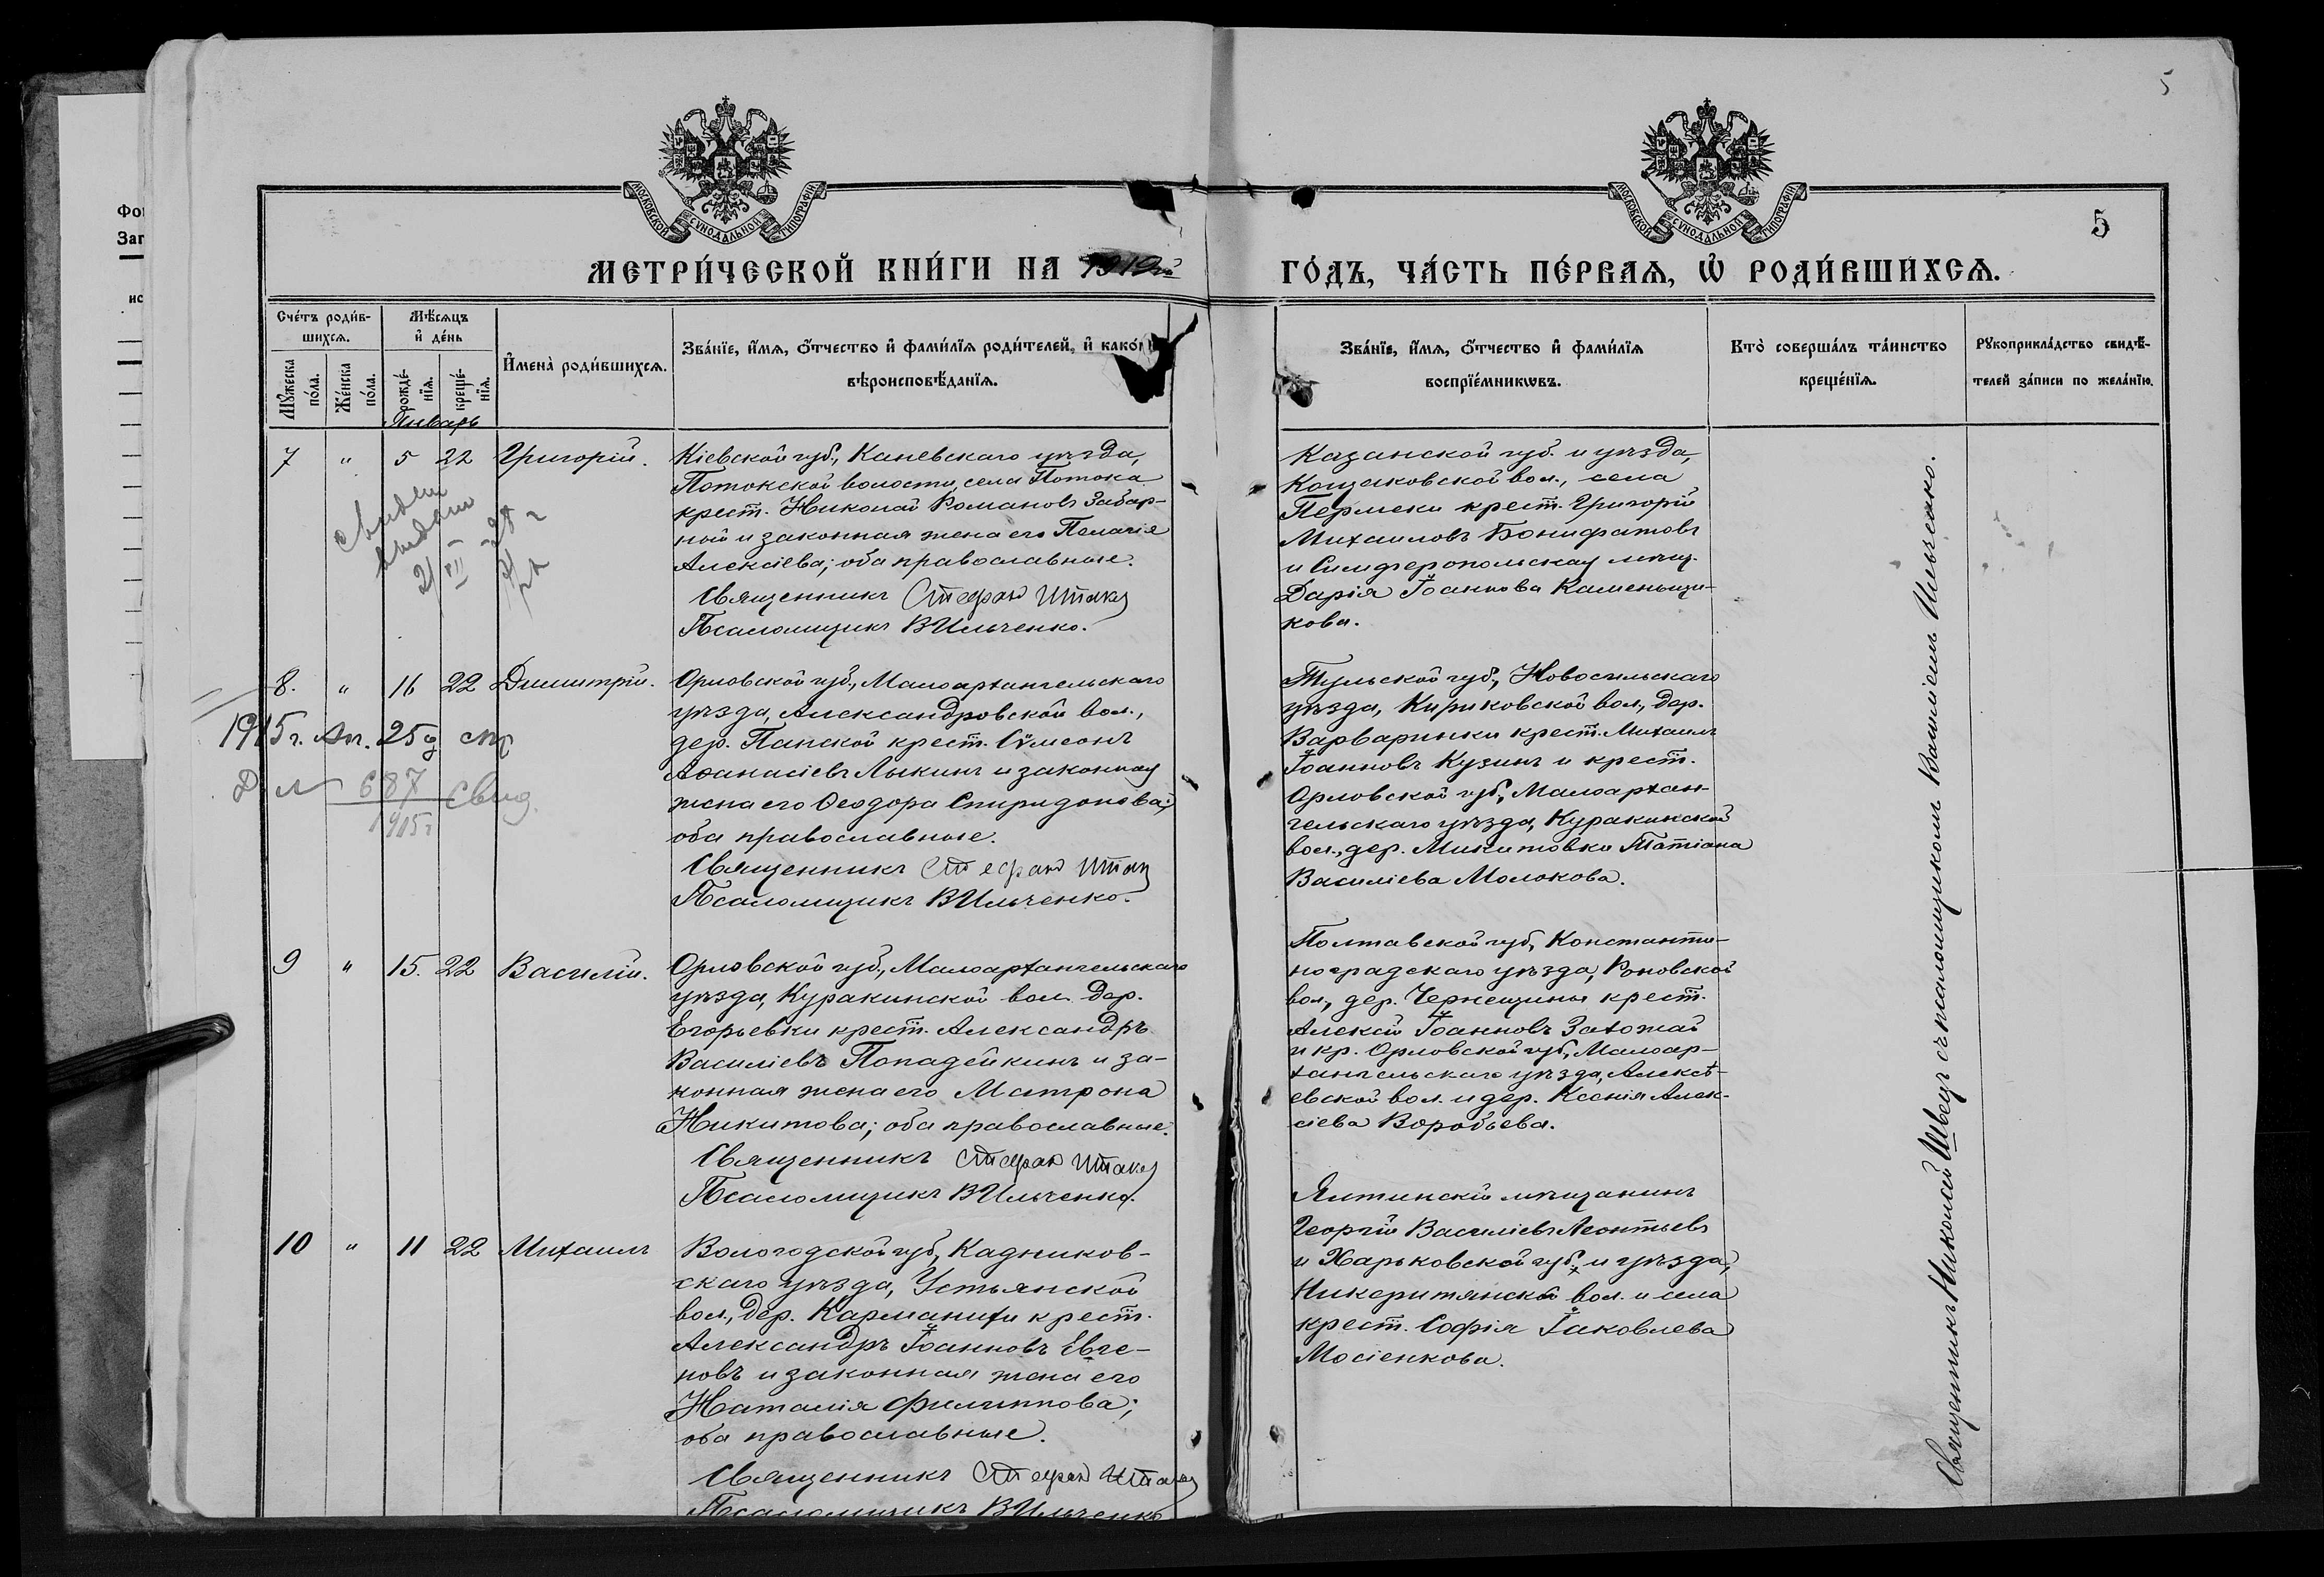 5
МОСКОВСКОЙ СѴНОДАЛЬНОЙ ТИПОГРАФІИ
МОСКОВСКОЙ СѴНОДАЛЬНОЙ ТИПОГРАФІИ
5
МЕТРИ́ЧЕСКОЙ КНИ́ГИ НА 1912й ГО́ДЪ, ЧА́СТЬ ПЕ́РВАЯ, Ѡ҆ РОДИ́ВШИХСЯ.
Сче́тъ роди́в-
шихся.
Мѣ́сяцъ
и҆ де́нь
Мꙋ́жеска
по́ла.
Же́нска
по́ла.
рожде́-
нїя.
креще́-
нїя.
И҆мена̀ роди́вшихся.
Зва́нїе, и҆́мя, ѻ҆́тчество и҆ фами́лїя роди́телей, и҆ како́
вѣроисповѣ́данїя.
Зва́нїе, и҆́мя, ѻ҆́тчество и҆ фами́лїя
воспрїе́мникѡвъ.
Кто̀ соверша́лъ та́инство
креще́нїя.
Рꙋкоприкла́дство свидѣ́-
телей за́писи по жела́нїю.
Январь
7 " 5 22 Григорій.
Кіевской губ., Каневскаго уѣзда,
Потокской волости, села Потока
крест. Николай Романовъ Забар-
ный и законная жена его Пелагія
Алексіева; оба православные.
Священникъ Стефан Штак
Псаломщикъ В Ильченко.
Казанской губ. и уѣзда,
Кощаковской вол., села
Пермеки крест. Григорій
Михаиловъ Бонифатовъ
и Симферопольская мѣщ.
Дарія Іоаннова Каменьщи-
кова.
8. " 16 22 Димитрій.
1915 г. Ап. 25
687 Свид.
1915 г
Орловской губ., Малоархангельскаго
уѣзда, Александровской вол.,
дер. Панской крест. Сѵмеонъ
Аѳанасіевъ Лыкинъ и законная
жена его Ѳеодора Спиридонова;
оба православные.
Священникъ Стефан Штак
Псаломщикъ В Ильченко.
Тульской губ., Новосильскаго
уѣзда, Кириковской вол., дер.
Варваринки крест. Михаилъ
Іоанновъ Кузинъ и крест.
Орловской губ., Малоархан-
гельскаго уѣзда, Куракинской
вол., дер. Микитовки Татіана
Василіева Молокова.
9 " 15. 22 Василій.
Орловской губ., Малоархангельскаго
уѣзда, Куракинской вол. дер.
Егорьевки крест. Александръ
Василіевъ Попадейкинъ и за-
конная жена его Матрона
Никитова; оба православные.
Священникъ Стефан Штак
Псаломщикъ В Ильченко.
Полтавской губ., Константи-
ноградскаго уѣзда, Роновской
вол., дер. Чернещины крест.
Алексій Іоанновъ Захожай
и кр. Орловской губ., Малоар-
хангельскаго уѣзда, Алексѣ-
евской вол. и дер. Ксенія Алек-
сіева Воробьева.
10 " 11 22 Михаилъ
Вологодской губ., Кадников-
скаго уѣзда, Устьянской
вол., дер. Карманихи крест.
Александръ Іоанновъ Евге-
новъ и законная жена его
Наталія Филиппова;
оба православные.
Священникъ Стефан Штак
Псаломщикъ В Ильченко
Ялтинскій мѣщанинъ
Георгій Василіевъ Леонтьевъ
и Харьковской губ. и уѣзда,
Никеритянской вол. и села
крест. Софія Іаковлева
Мосіенкова.
Священникъ Николай Швецъ съ псаломщикомъ Василіемъ Ильченко.